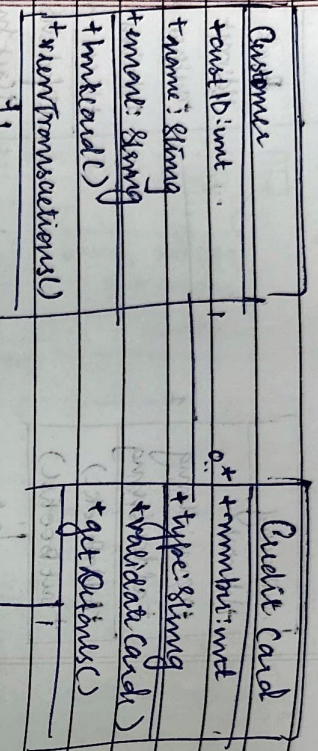 Customer
+cust ID: int
+name: String
+email: String
+linkcard()
+viewTransactions()
1
0..*
Credit Card
+number: int
+type: String
+validate Card()
+get Details()
1